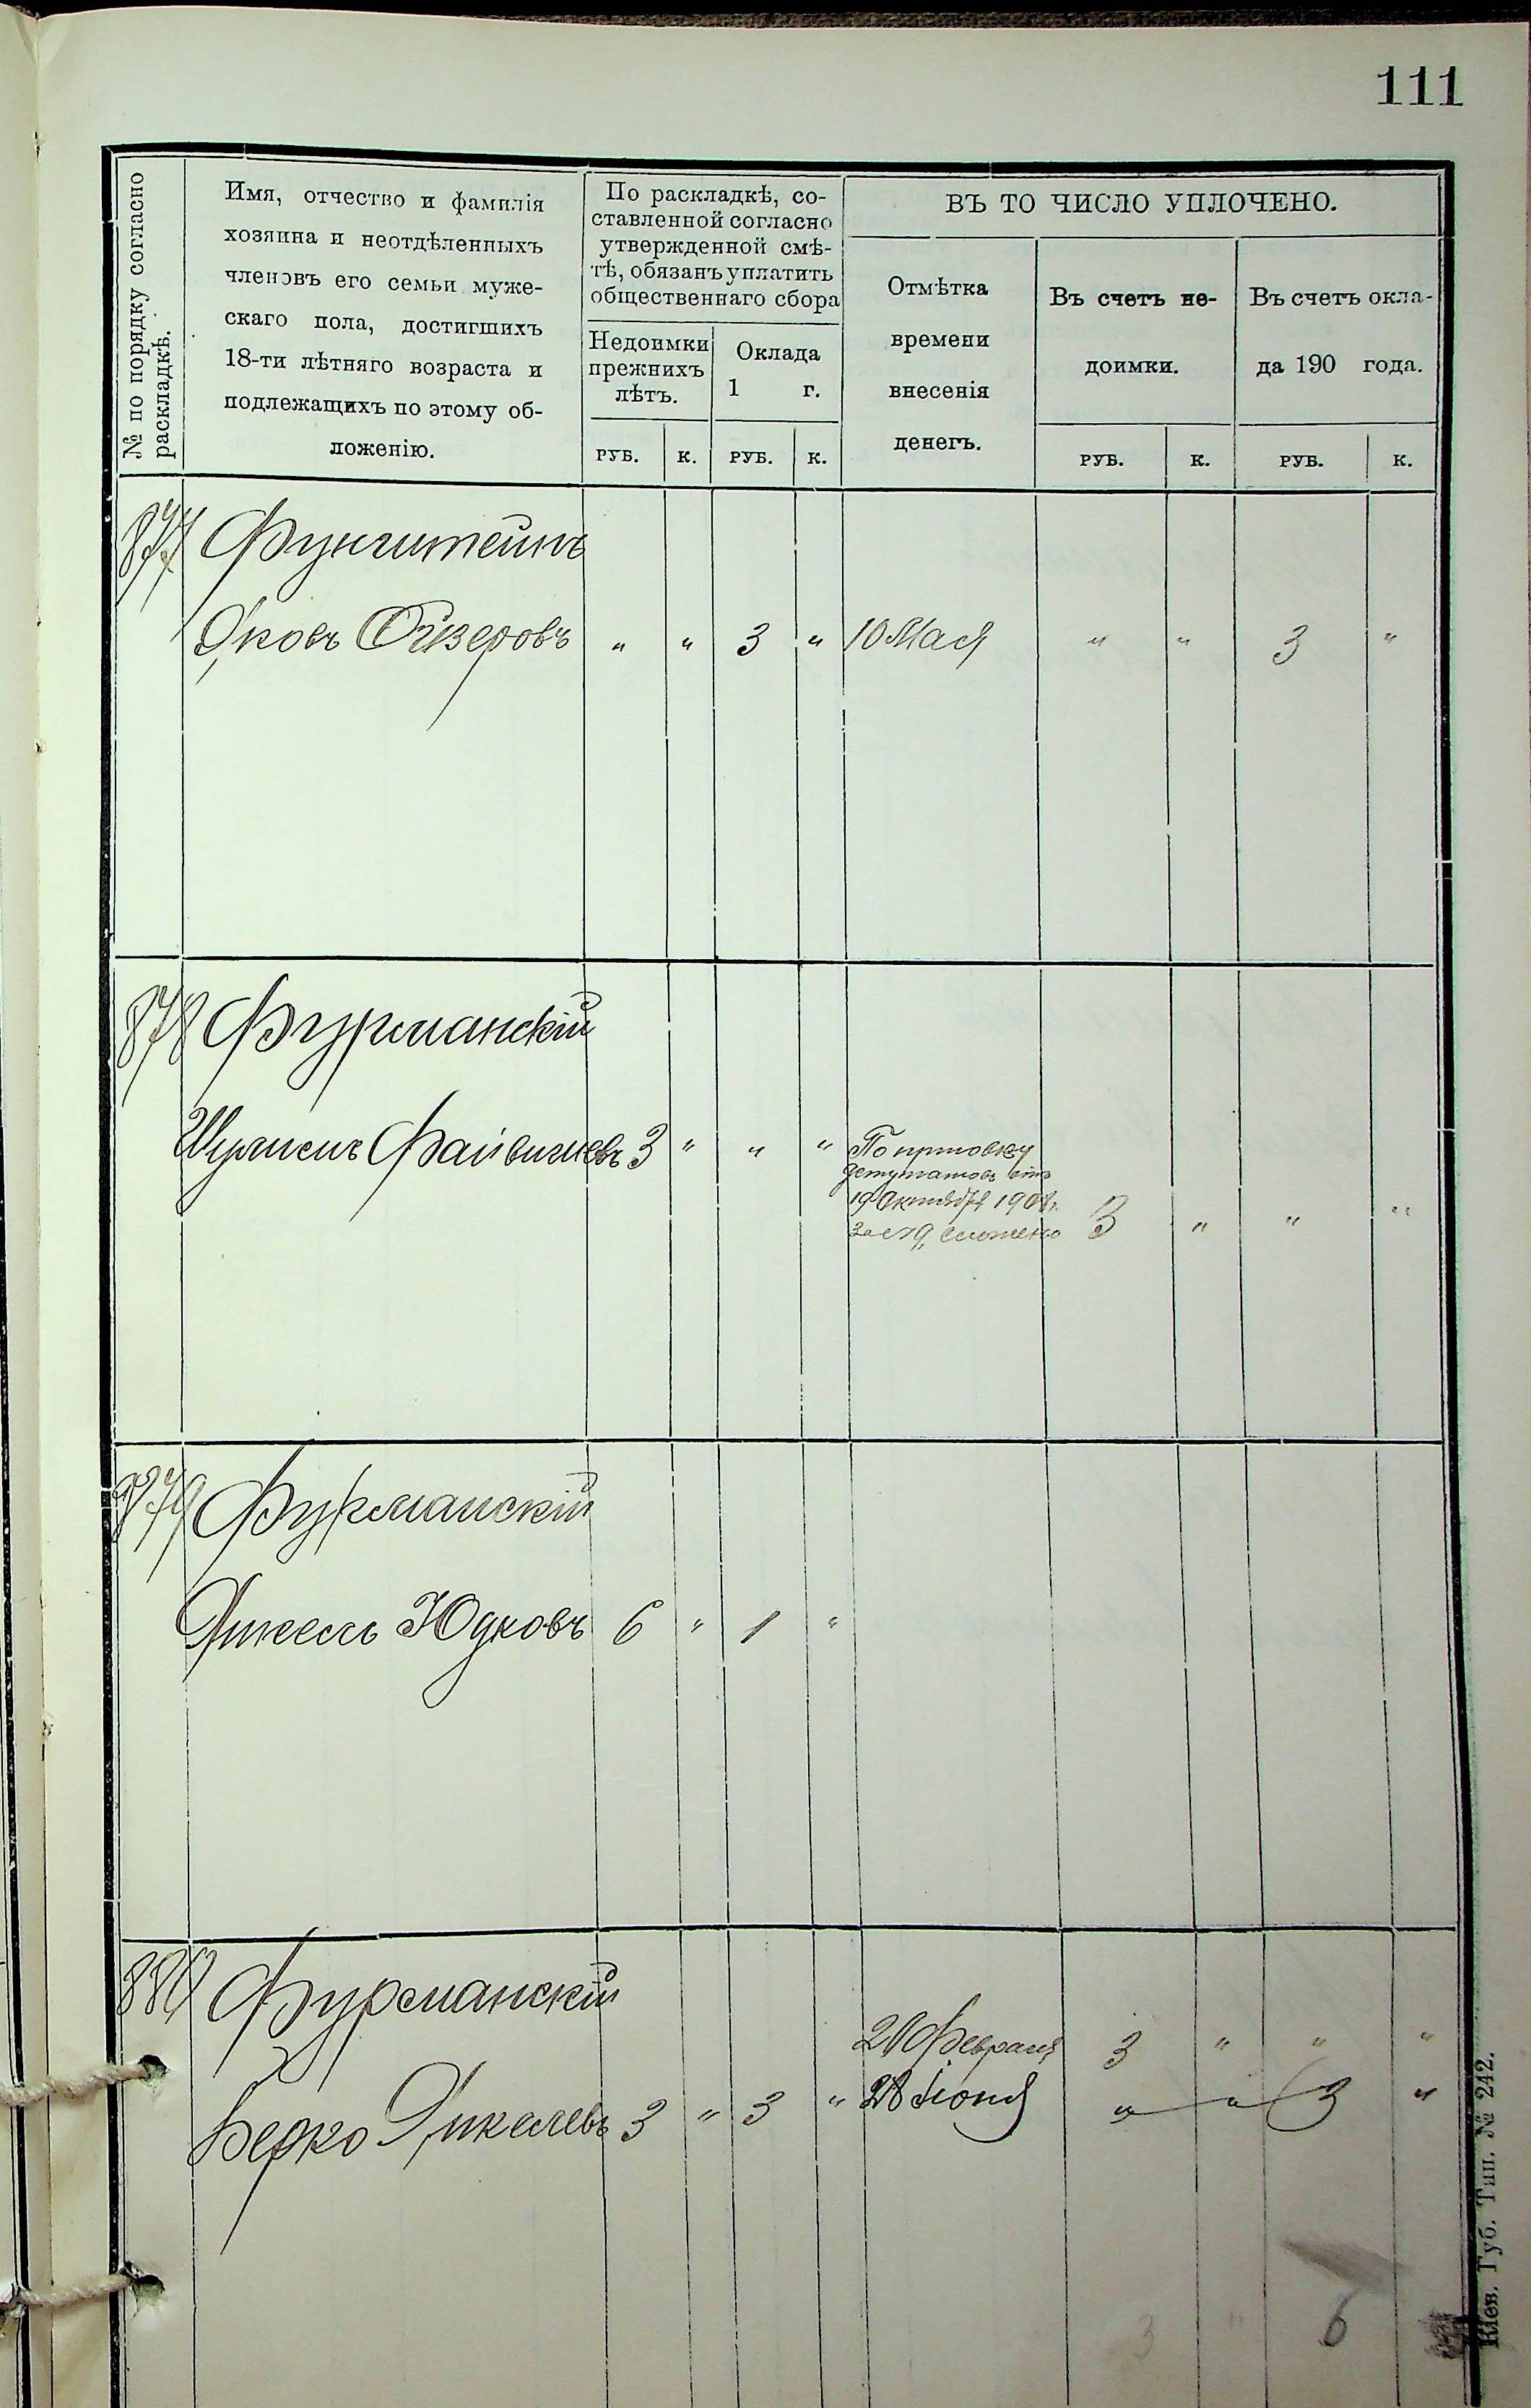 111
№ по порядку согласно
раскладкѣ.
Имя, отчество и фамилія
хозяина и неотдѣленныхъ
членовъ его семьи муже-
скаго пола, достигшихъ
18-ти лѣтняго возраста и
подлежащихъ по этому об-
ложенію.
По раскладкѣ, со-
ставленной согласно
утвержденной смѣ-
тѣ, обязанъ уплатить
общественнаго сбора
Недоимки
прежнихъ
лѣтъ.
Оклада
1 г.
ВЪ ТО ЧИСЛО УПЛОЧЕНО.
Отмѣтка
времени
внесенія
денегъ.
Въ счетъ не-
доимки.
Въ счетъ окла-
да 190 года.
РУБ. К. РУБ. К. РУБ. К. РУБ. К.
877 Фунштейнъ
Яковъ Ойзеровъ " " 3 " 10 Мая " " 3 "
878 Фурманскій
Шулимъ Файвишевъ 3 " " "
По приговору
депутатовъ отъ
19 Октября 1908 г.
за № 9, сложено 3 " " "
879 Фурманскій
Янкель Юдковъ 6 " 1 "
880 Фурманскій
20 Февраля 3 " " "
Берко Янкелевъ 3 " 3 " 28 Іюня " " 3 "
3 " 6
Кіев. Губ. Тип. № 242.